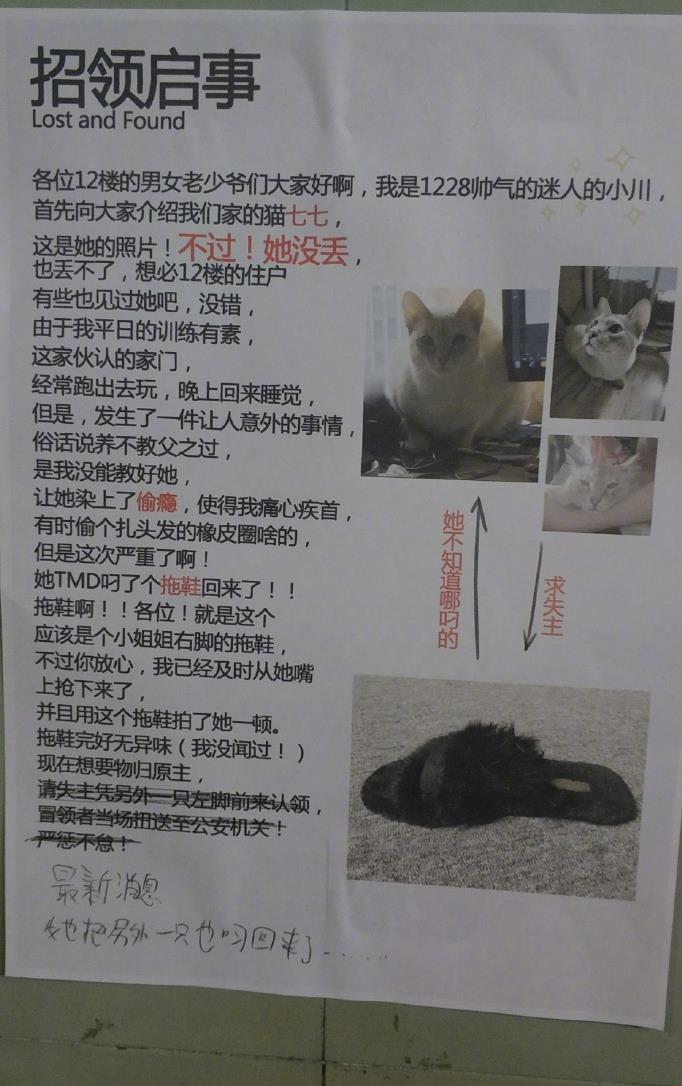 招领启事
Lost and Found
各位12楼的男女老少爷们大家好啊，我是1228帅气的迷人的小川，
首先向大家介绍我们家的猫七七，
这是她的照片！不过！她没丢，
也丢不了，想必12楼的住户
有些也见过她吧，没错，
由于我平日的训练有素，
这家伙认的家门，
经常跑出去玩，晚上回来睡觉，
但是，发生了一件让人意外的事情，
俗话说养不教父之过，
是我没能教好她，
让她染上了偷瘾，使得我痛心疾首，
有时偷个扎头发的橡皮圈啥的，
但是这次严重了啊！
她TMD叼了个拖鞋回来了！！
拖鞋啊！！各位！就是这个
应该是个小姐姐右脚的拖鞋，
不过你放心，我已经及时从她嘴
上抢下来了，
并且用这个拖鞋拍了她一顿。
拖鞋完好无异味（我没闻过！）
现在想要物归原主，
请失主凭另外一只左脚前来认领，
冒领者当场扭送至公安机关！
严惩不怠！
最新消息
她把另外一只也叼回来了......
她不知道哪叼的
求失主